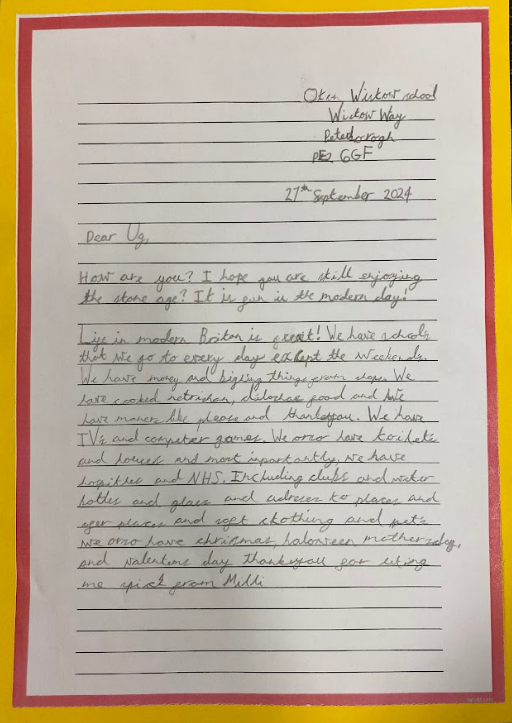 Winton school
Winton Way
Peterborogh
PE2 GGF
27th September 2024
Dear Ug,
How are you? I hope you are still enjoying
the stone age? It is fun in the modern day!
Life in modern Britan is great! We have schools
that we go to every day except the weekends.
We have money and things from shops. We
have cooked food and We
have maners like please and thankyou. We have
TV's and computer games. We orso have toilets
and houses and most inportantly, we have
hospitles and NHS. Including clubs and water
bottles and glass and adreses to places and
places and soft clothing and pets
we orso have christmas, haloween mothersday,
and valentins day thankyou for leting
me from Milli